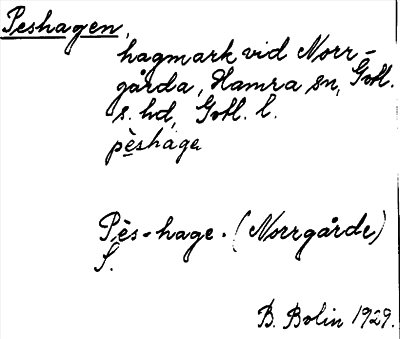 Peshagen,
hagmark vid Norr-
gårda, Hamra sn, Gotl.
s. hd, Gotl. l.
pèshage
Pès-hage. (Norrgårde)
S.
B. Bolin 1929.